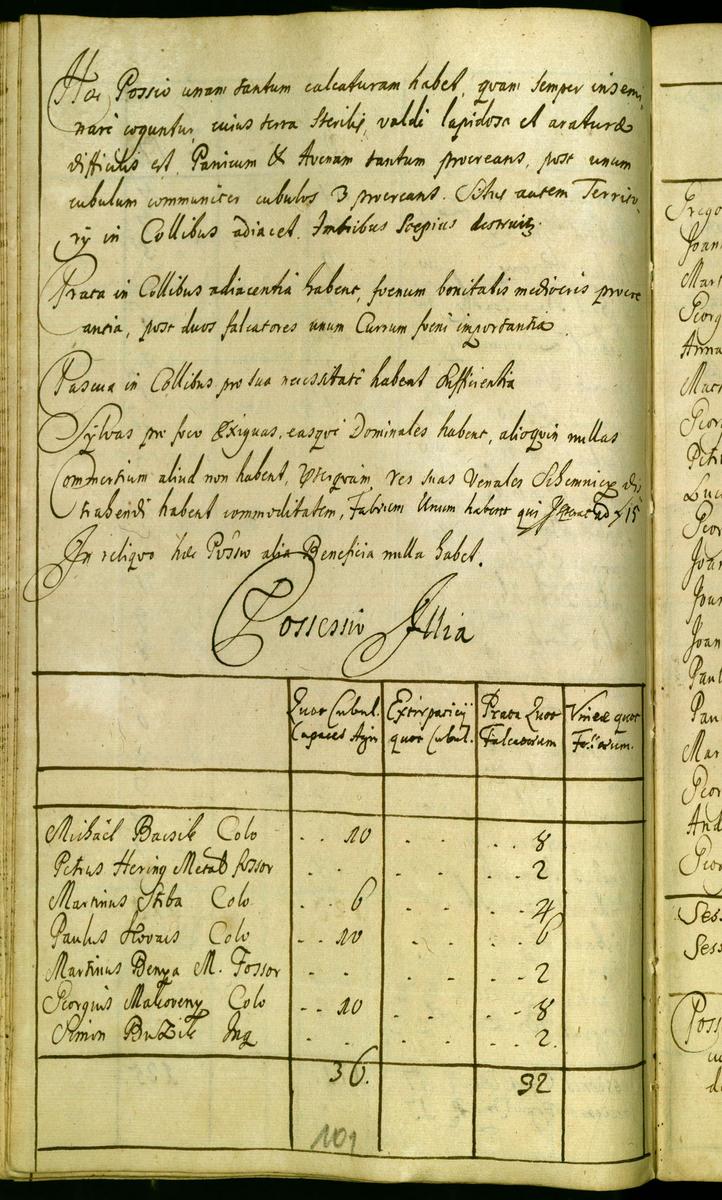 Hae Possio unam tantum calcaturam habet, quam semper insemi
nare coguntur, cuius terra sterilis, valde lapidosa et araturae
difficilis est, Panicum & Avenam tantum procreans, post unum
cubulum communiter cubulos 3 procreans. Situs autem Territo
ry in Collibus adiacet. Imbribus Saepius destruitr.
Prata in Collibus adiacentia habent, foenum bonitatis mediocris procre
antia, post duos falcatores unum Currum foeni importantia.
Pascua in Collibus pro sua necessitate habent Sufficientia
Sylvas pro foco Exiguas, easque Dominales habent, alioquin nullas
Commertium aliud non habent, praeterquam, res suas Venales Schemniczy dis
trahendi habent commoditatem, Fabrum Unum habent qui ad 15
In reliquo haec Possio alia Beneficia nulla habet.
Possessio Illia
Quot Cubul. Extirpaticij Prata Quot Vineae quot
Capaces Agri quot Cubul. Falcatorum Fossorum.
Michäel Bacsik Colo . . 10 . . . . . 8
Petrus Hering Metal fossor . . . . . . . 2
Martinus Stiba Colo . . 6 . . . . 4
Paulus Kovacs Colo . . 10 . . . . 6
Martinus Benya M. Fossor . . . . . . 2
Georgius Makoveny Colo . . 10 . . . . 8
Simon Buzik Inq . . . . . . 2.
36. 32
101
Grego
Joan
Mart
Georg
Anna
Mart
Geor
Petr
Luc
Geor
Joan
Joan
Joan
Paul
Pau
Mar
Geor
And
Geor
Sess
Sess
Poss